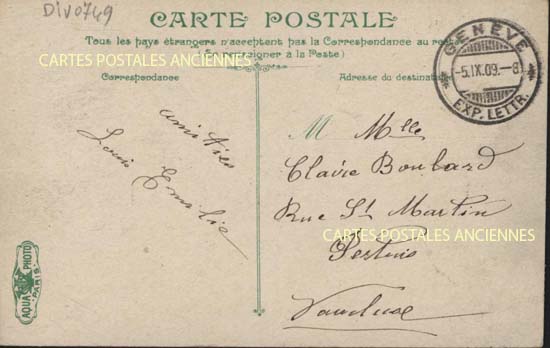 DIV0749
CARTE POSTALE
Tous les pays étrangers n'acceptent pas la Correspondance au recto
(Se renseigner à la Poste)
CARTES POSTALES ANCIENNES
Correspondance
Adresse du destinataire
GENÈVE
-5.IX.09.-8
EXP. LETTR.
amitiés
Louis Emilie
M Mlle
Claire Boulard
Rue St Martin
CARTES POSTALES ANCIENNES
Pertuis
Vaucluse
AQUA PHOTO
PARIS